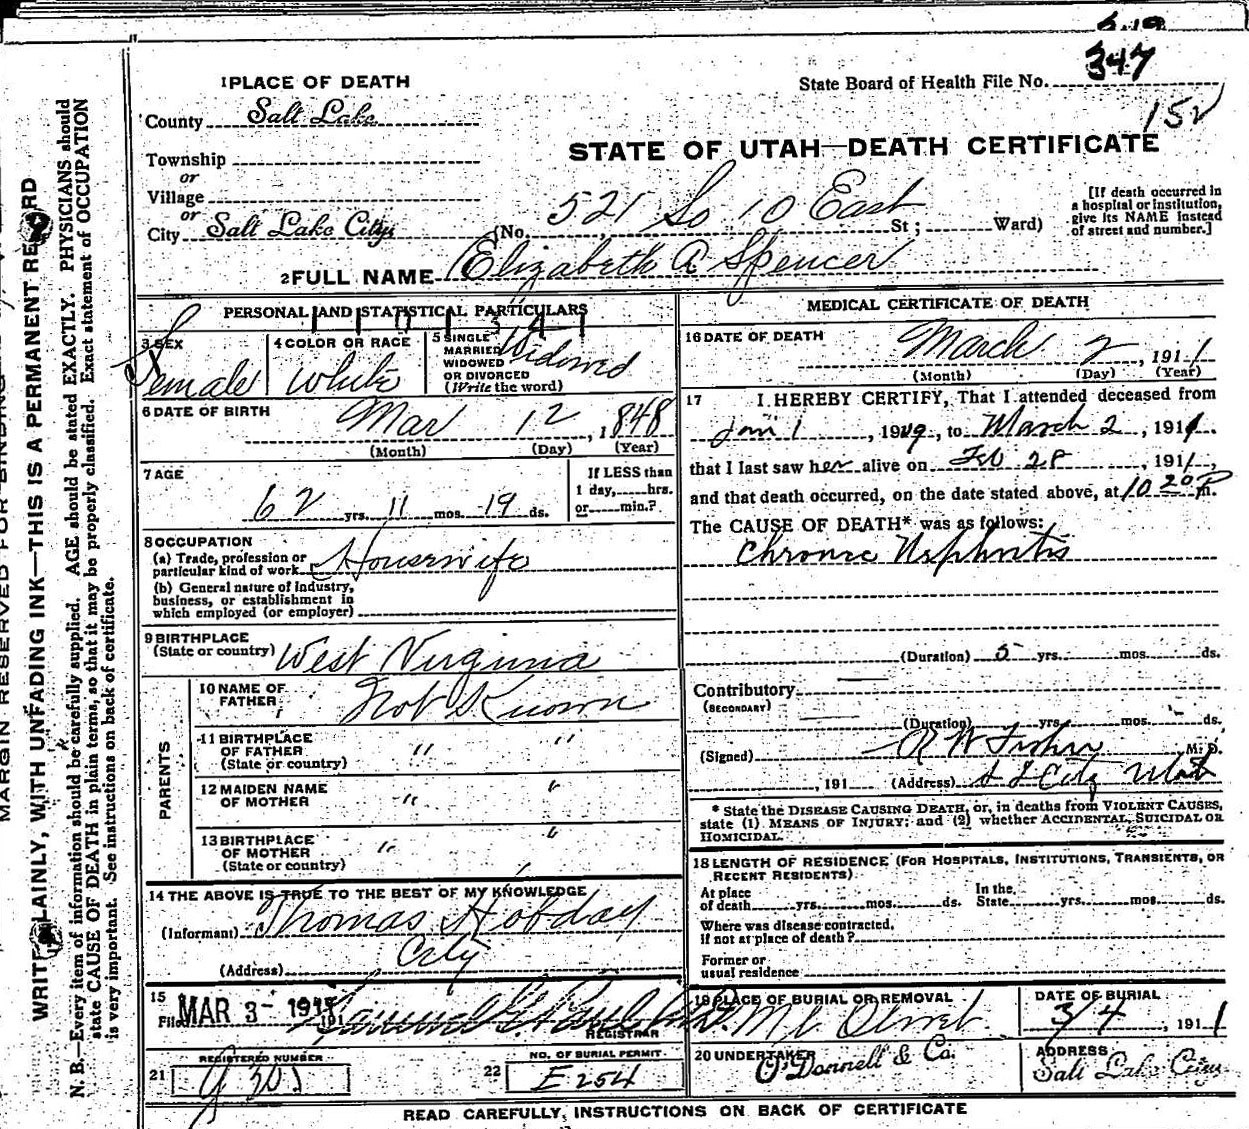 5-19
347
1 PLACE OF DEATH
State Board of Health File No.
County Salt Lake
152
Township
STATE OF UTAH—DEATH CERTIFICATE
or
Village
or
City Salt Lake City (No. 521 So 10 East St; Ward)
[If death occurred in
a hospital or institution,
give its NAME instead
of street and number.]
2 FULL NAME Elizabeth A Spencer
PERSONAL AND STATISTICAL PARTICULARS
3 SEX
Female
4 COLOR OR RACE
White
5 SINGLE
MARRIED
WIDOWED
OR DIVORCED
(Write the word)
Widowed
6 DATE OF BIRTH
Mar 12, 1848
(Month) (Day) (Year)
7 AGE
62 yrs. 11 mos. 19 ds.
If LESS than
1 day, hrs.
or min.?
8 OCCUPATION
(a) Trade, profession or
particular kind of work Housewife
(b) General nature of industry,
business, or establishment in
which employed (or employer)
9 BIRTHPLACE
(State or country) West Virginia
PARENTS
10 NAME OF
FATHER Not Known
11 BIRTHPLACE
OF FATHER
(State or country) " "
12 MAIDEN NAME
OF MOTHER " "
13 BIRTHPLACE
OF MOTHER
(State or country) " "
14 THE ABOVE IS TRUE TO THE BEST OF MY KNOWLEDGE
(Informant) Thomas Hobday
(Address) City
15
Filed MAR 3- 1911 191
REGISTRAR
21
REGISTERED NUMBER
22
NO. OF BURIAL PERMIT
E 254
MEDICAL CERTIFICATE OF DEATH
16 DATE OF DEATH
March 2, 1911
(Month) (Day) (Year)
17 I HEREBY CERTIFY, That I attended deceased from
Jan 1, 1909, to March 2, 1911.
that I last saw her alive on Feb 28, 1911,
and that death occurred, on the date stated above, at 10 20 P m.
The CAUSE OF DEATH* was as follows:
Chronic Nephritis
(Duration) 5 yrs. mos. ds.
Contributory
(SECONDARY)
(Duration) yrs. mos. ds.
(Signed) R W Fisher M. D.
, 191 (Address) S L City Utah
* State the DISEASE CAUSING DEATH, or, in deaths from VIOLENT CAUSES,
state (1) MEANS OF INJURY; and (2) whether ACCIDENTAL, SUICIDAL OR
HOMICIDAL.
18 LENGTH OF RESIDENCE (FOR HOSPITALS, INSTITUTIONS, TRANSIENTS, OR
RECENT RESIDENTS)
At place
of death yrs. mos. ds.
In the
State yrs. mos. ds.
Where was disease contracted,
if not at place of death?
Former or
usual residence
19 PLACE OF BURIAL OR REMOVAL
Mt Olivet
DATE OF BURIAL
3/4, 1911
20 UNDERTAKER
O'Donnell & Co.
ADDRESS
Salt Lake City
READ CAREFULLY, INSTRUCTIONS ON BACK OF CERTIFICATE
MARGIN RESERVED FOR BINDING
WRITE PLAINLY, WITH UNFADING INK—THIS IS A PERMANENT RECORD
N. B.—Every item of information should be carefully supplied. AGE should be stated EXACTLY. PHYSICIANS should
state CAUSE OF DEATH in plain terms, so that it may be properly classified. Exact statement of OCCUPATION
is very important. See instructions on back of certificate.